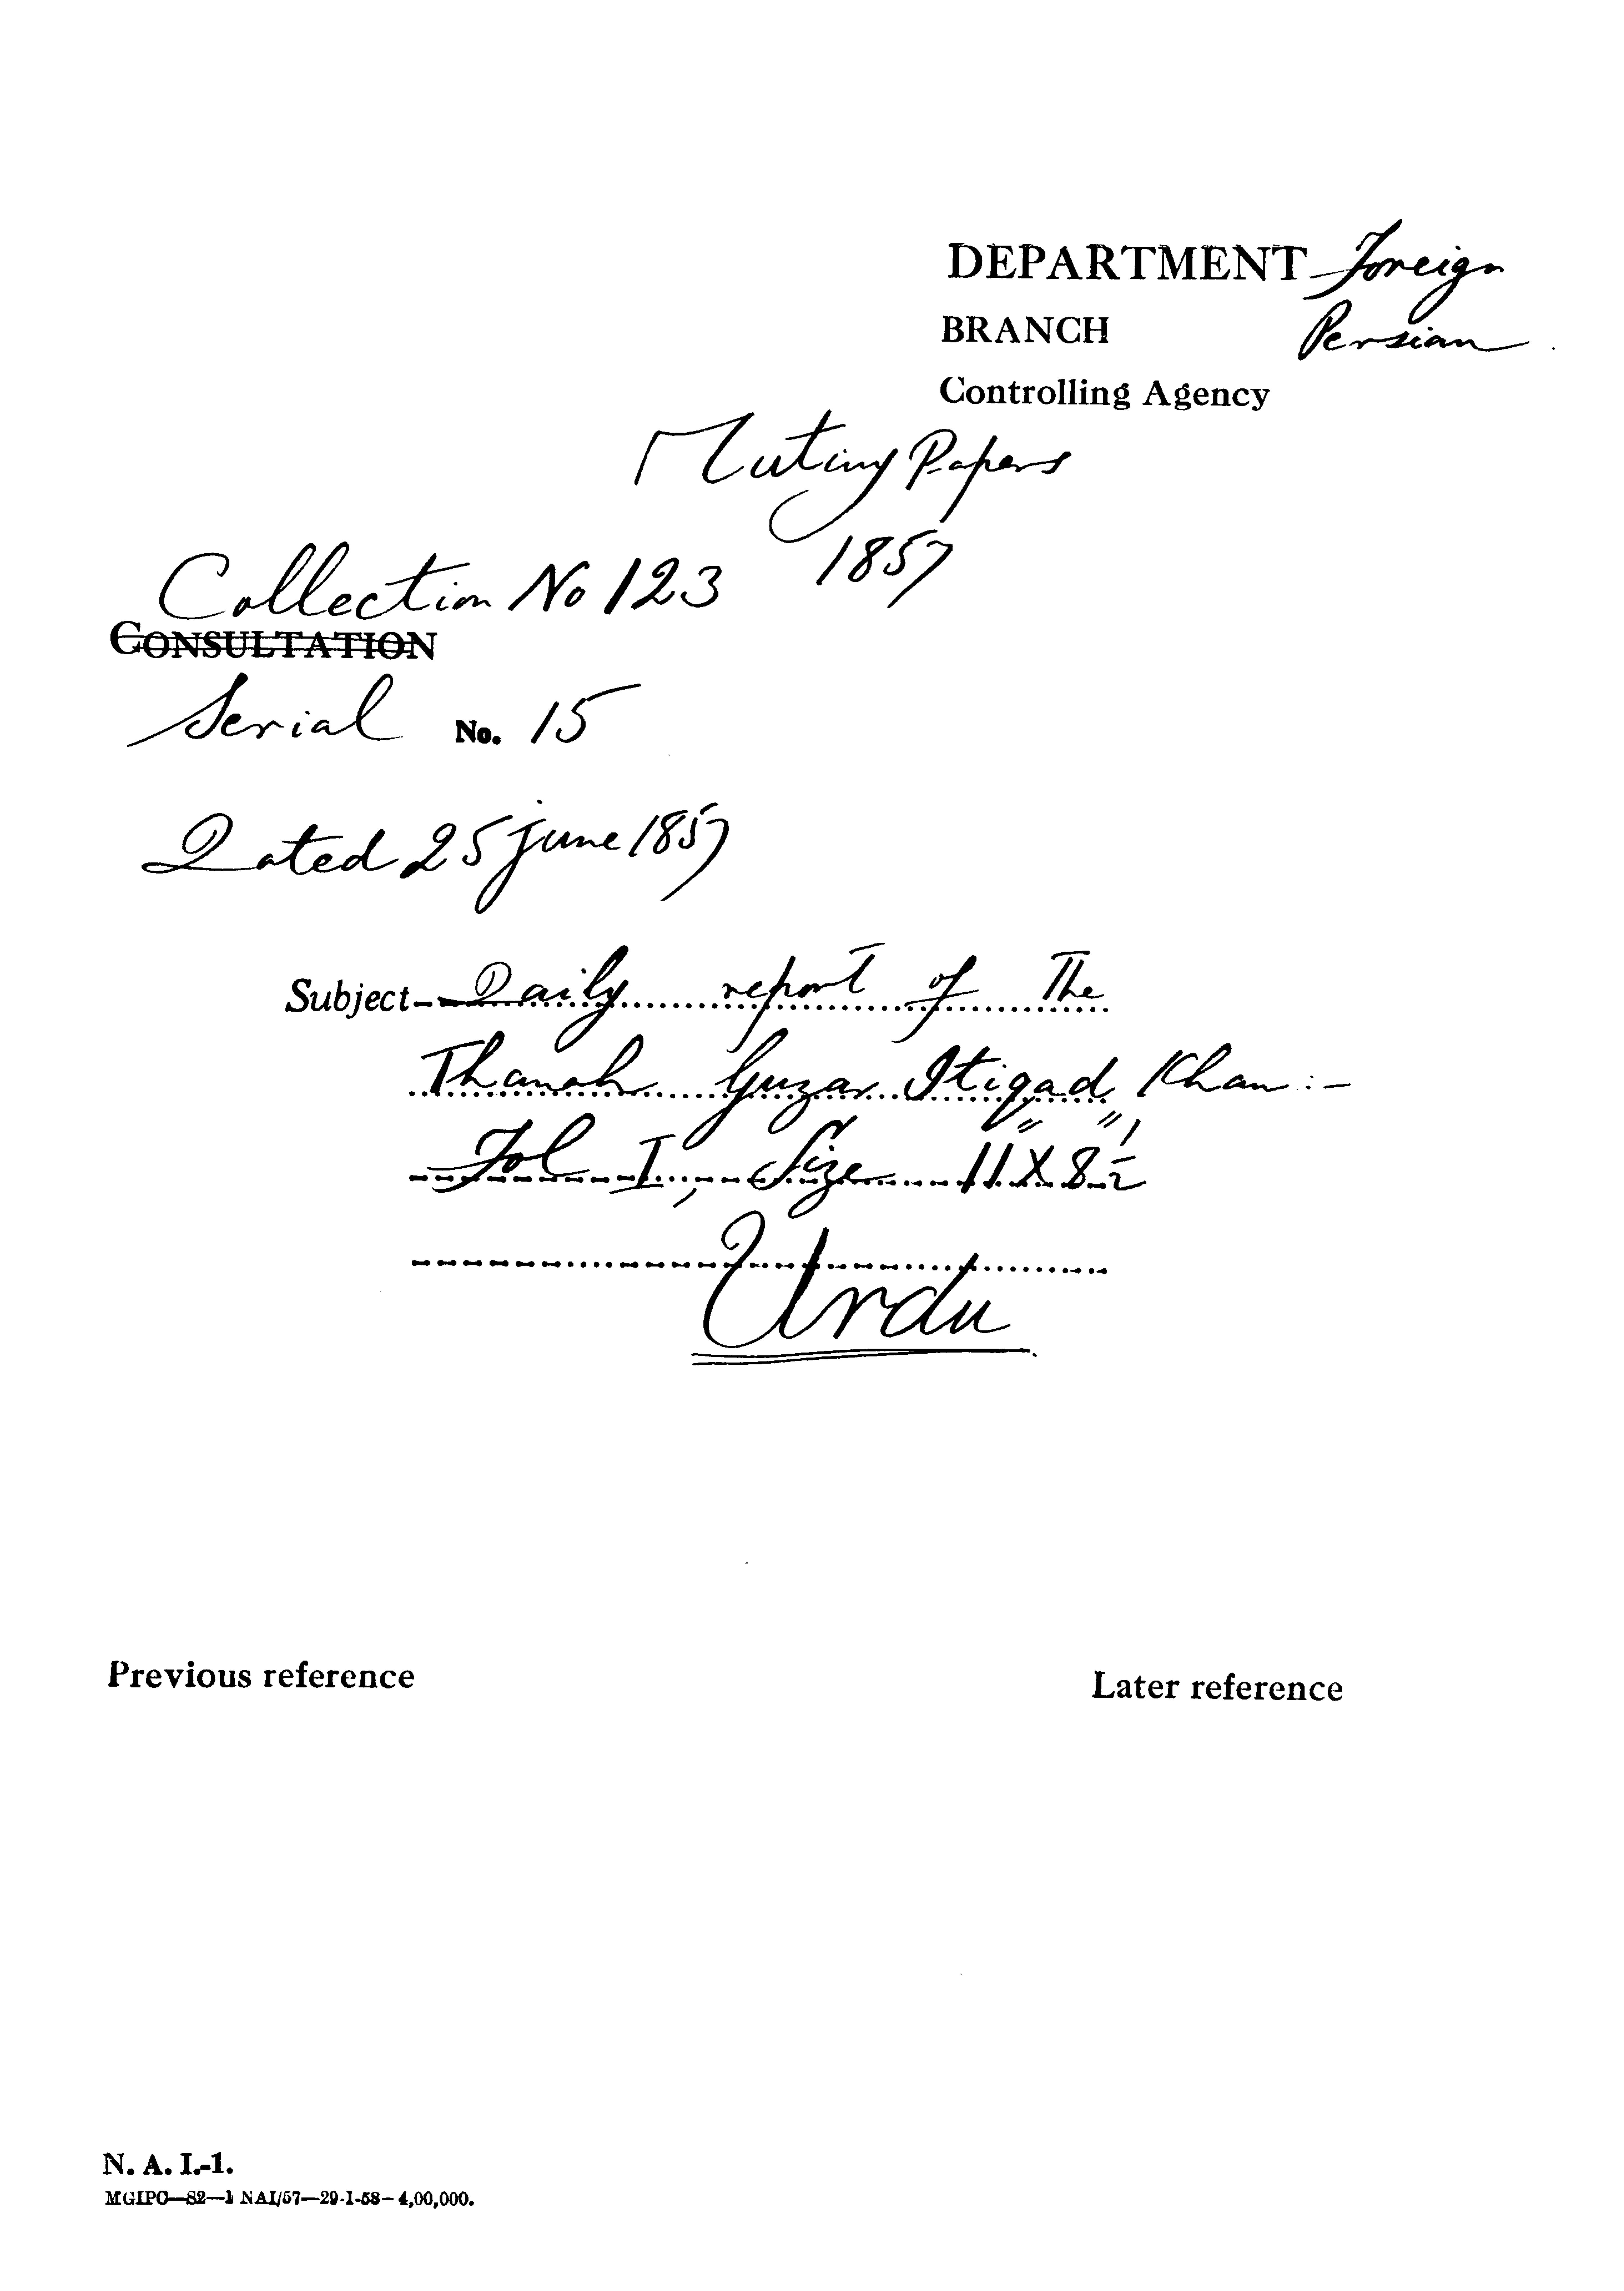 DEPARTMENT Foreign
BRANCH Persian
Controlling Agency
Mutiny Papers
1857
Collection No 123
CONSULTATION
Serial No. 15
Dated 25 June 1857
Subject Daily report of The
Thanah Guzar Itiqad Khan :-
Fol I, Size 11" X 8½"
Urdu
Previous reference
Later reference
N. A. I.-1.
MGIPC—S2—1 NAI/57—29-1-58—4,00,000.